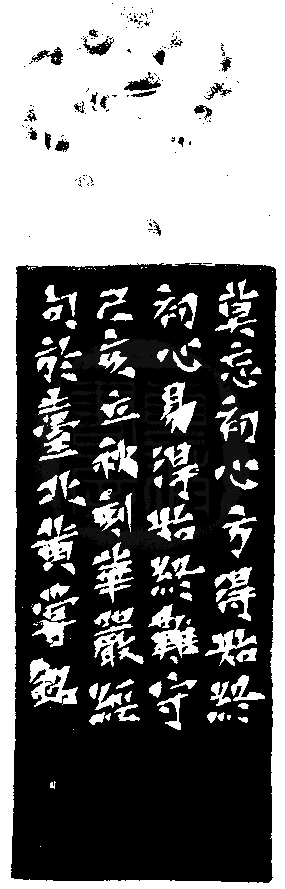 莫忘初心方得始終
初心易得始終難守
己亥立秋刻華嚴經
句於臺北黃嘗銘